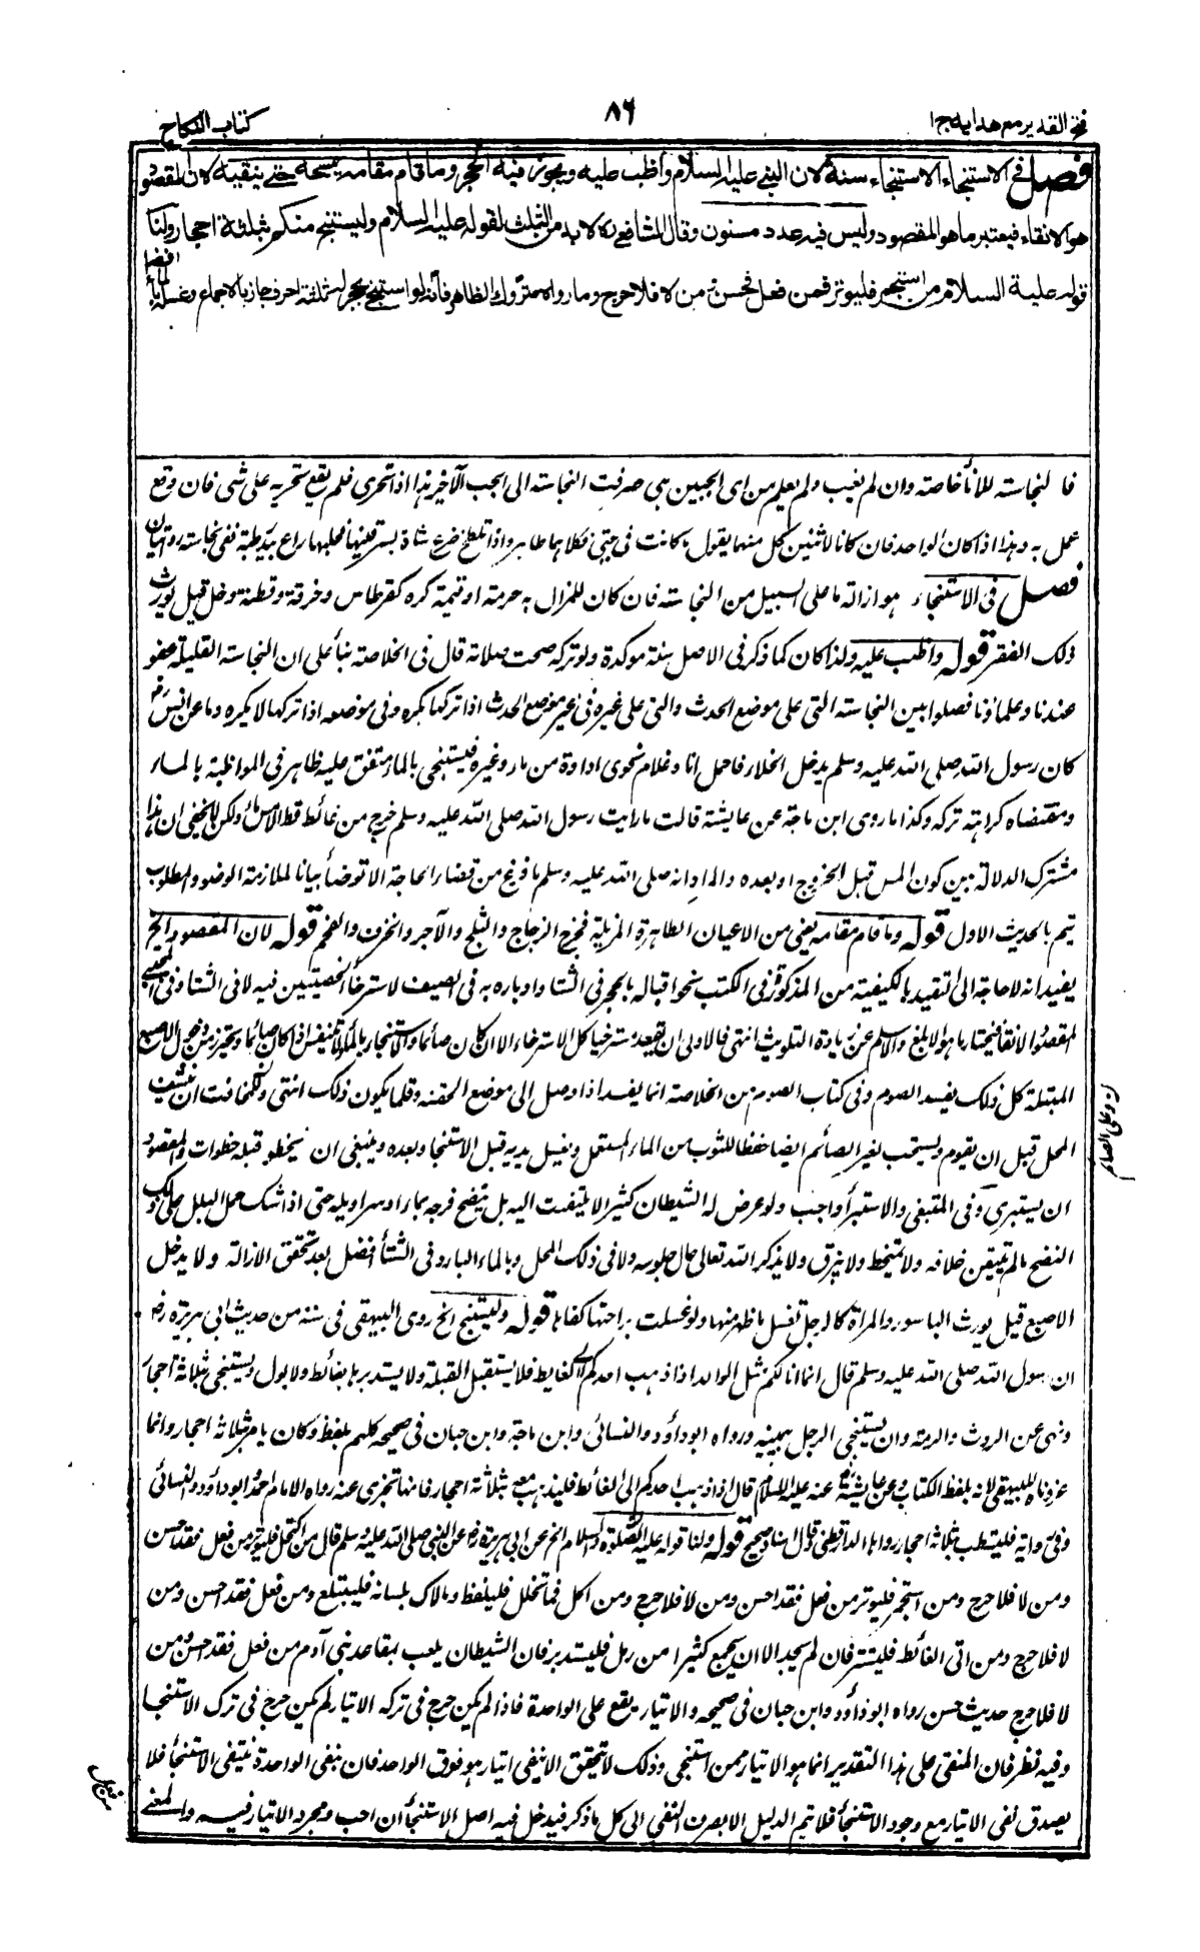 فتح القدير مع هدايه ج ا
٨٦
كتاب النكاح
فصل في الاستنجاء الاستنجاء سنة لان النبي عليه السلام واظب عليه ويجوز فيه الحجر وما قام مقامه يمسحه حتى ينقيه لان المقصود
هو الانقاء فيعتبر ما هو المقصود وليس فيه عدد مسنون وقال الشافعي لا بد من الثلث لقوله عليه السلام وليستنج منكم بثلثة احجار ولنا
قوله عليه السلام من استجمر فليوتر فمن فعل فحسن ومن لا فلا حرج وما رواه متروك الظاهر فانه لو استنجى بحجر له ثلثة احرف جاز بالاجماع وغسله بالماء
افضل
فالنجاسة للاناء خاصة وان لم يغب ولم يعلم من اى الجبين هي صرفت النجاسة الى الجب الآخر هذا اذا تحرى فلم يقع تحريه على شئ فان وقع
عمل به وهذا اذا كان الواحد فان كانا لاثنين كل منهما يقول ما كانت في جبي فكلاهما طاهر واذا تلطخ ضرع شاة بسرقينها فحلبها راع بيد رطبة ففى نجاسته روايتان
فصل فى الاستنجاء هو ازالة ما على السبيل من النجاسة فان كان للمزال به حرمة او قيمة كره كقرطاس وخرقة وقطنة وخل قيل يورث
ذلك الفقر قوله واظب عليه ولذا كان كما ذكر فى الاصل سنة موكدة ولو تركه صحت صلاته قال فى الخلاصة بناء على ان النجاسة القليلة عفو
عندنا وعلماؤنا فصلوا بين النجاسة التى على موضع الحدث والتى على غيره فى غير موضع الحدث اذا تركها يكره وفى موضعه اذا تركها لا يكره وما عن انس رض
كان رسول الله صلى الله عليه وسلم يدخل الخلاء فاحمل انا وغلام نحوى اداوة من ماء وغيره فيستنجى بالماء متفق عليه ظاهر فى المواظبة بالماء
ومقتضاه كراهة تركه وكذا ما روى ابن ماجة عن عايشة قالت ما رايت رسول الله صلى الله عليه وسلم خرج من غائط قط الا مس ماء ولكن لا يخفى ان هذا
مشترك الدلالة بين كون المس قبل الخروج او بعده والمراد انه صلى الله عليه وسلم ما فرغ من قضاء الحاجة الا توضأ بيانا لملازمة الوضوء والمطلوب
يتم بالحديث الاول قوله وما قام مقامه يعنى من الاعيان الطاهرة المزيلة فخرج الزجاج والثلج والآجر والخزف والفحم قوله لان المقصود الخ
يفيد انه لا حاجة الى التقييد بالكيفية من المذكورة فى الكتب نحو اقباله بالحجر فى الشتاء وادباره به فى الصيف لاسترخاء الخصيتين فيه لا فى الشتاء وفى المجتبى
المقصود الانقاء فيختار ما هو الابلغ والاسلم عن زيادة التلويث انتهى فالاولى ان يقعد مسترخيا كل الاسترخاء الا ان كان صائما والاستنجاء بالماء لا يتنفس اذا كان صائما ويحترز من دخول الاصبع
المبتلة كل ذلك يفسد الصوم وفى كتاب الصوم من الخلاصة انما يفسد اذا وصل الى موضع الحقنة وقلما يكون ذلك انتهى وللمخافة ان ينشف
المحل قبل ان يقوم ويستحب لغير الصائم ايضا حفظا للثوب من الماء المستعمل ويغسل يديه قبل الاستنجاء وبعده وينبغى ان يخطو قبله خطوات والمقصود
ان يستبرى وفى المبتغى والاستبراء واجب ولو عرض له الشيطان كثيرا لا يلتفت اليه بل ينضح فرجه بماء او سراويله حتى اذا شك حمل البلل على ذلك
النضح ما لم يتيقن خلافه ولا يتمخط ولا يبزق ولا يذكر الله تعالى حال جلوسه ولا فى ذلك المحل وبالماء البارد فى الشتاء افضل بعد تحقق الازالة ولا يدخل
الاصبع قيل يورث الباسور والمراة كالرجل تغسل ما ظهر منها ولو غسلت براحتها كفاها قوله وليستنج الخ روى البيهقى فى سننه من حديث ابى هريرة رض
ان رسول الله صلى الله عليه وسلم قال انما انا لكم مثل الوالد اذا ذهب احدكم الى الغايط فلا يستقبل القبلة ولا يستدبرها بغائط ولا بول ويستنجى بثلاثة احجار
ونهى عن الروث والرمة وان يستنجى الرجل بيمينه ورواه ابوداؤد والنسائى وابن ماجة وابن حبان فى صحيحه كلهم بلفظ وكان يامر بثلاثة احجار وانما
عزوناه للبيهقى لانه بلفظ الكتاب وعن عايشة رض عنه عليه السلام قال اذا ذهب احدكم الى الغائط فليذهب معه بثلاثة احجار فانها تجزى عنه رواه الامام احمد وابوداؤد والنسائى
وفى رواية فليستطب بثلاثة احجار رواها الدارقطنى وقال اسناد صحيح قوله ولنا قوله عليه الصلوة والسلام الخ عن ابى هريرة رض عن النبى صلى الله عليه وسلم قال من اكتحل فليوتر من فعل فقد احسن
ومن لا فلا حرج ومن استجمر فليوتر من فعل فقد احسن ومن لا فلا حرج ومن اكل فما تخلل فليلفظ وما لاك بلسانه فليبتلع ومن فعل فقد احسن ومن
لا فلا حرج ومن اتى الغائط فليستتر فان لم يجد الا ان يجمع كثيرا من رمل فليستدبره فان الشيطان يلعب بمقاعد بنى آدم من فعل فقد احسن ومن
لا فلا حرج حديث حسن رواه ابوداؤد وابن حبان فى صحيحه والايتار يقع على الواحدة فاذا لم يكن حرج فى تركه الايتار لم يكن حرج فى ترك الاستنجا
وفيه نظر فان المنفى على هذا التقدير انما هو الايتار ممن استنجى وذلك لا يتحقق الا بنفى ايتار هو فوق الواحد فان بنفى الواحدة ينتفى الاستنجاء فلا
يصدق نفى الايتار مع وجود الاستنجاء فلا يتم الدليل الا بصرف النفى الى كل ما ذكر فيدخل فيه اصل الاستنجاء ان احب ومجرد الايتار فيه والمعنى